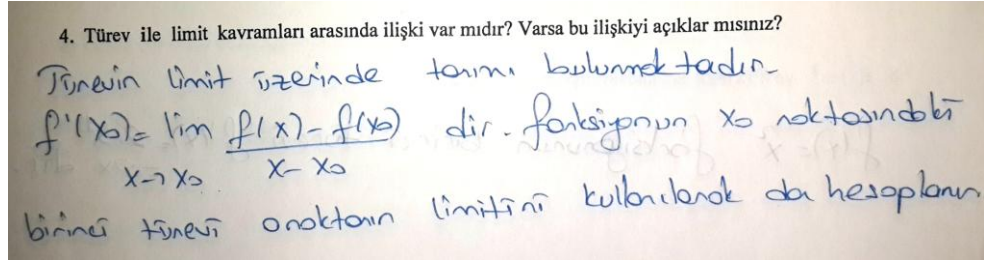 4. Türev ile limit kavramları arasında ilişki var mıdır? Varsa bu ilişkiyi açıklar mısınız?
Türevin limit üzerinde tanımı bulunmaktadır.
f'(x₀) = lim f(x) - f(x₀) dir. fonksiyonun x₀ noktasındaki
x→x₀ x - x₀
birinci türevi o noktanın limitini kullanılarak da hesaplanır